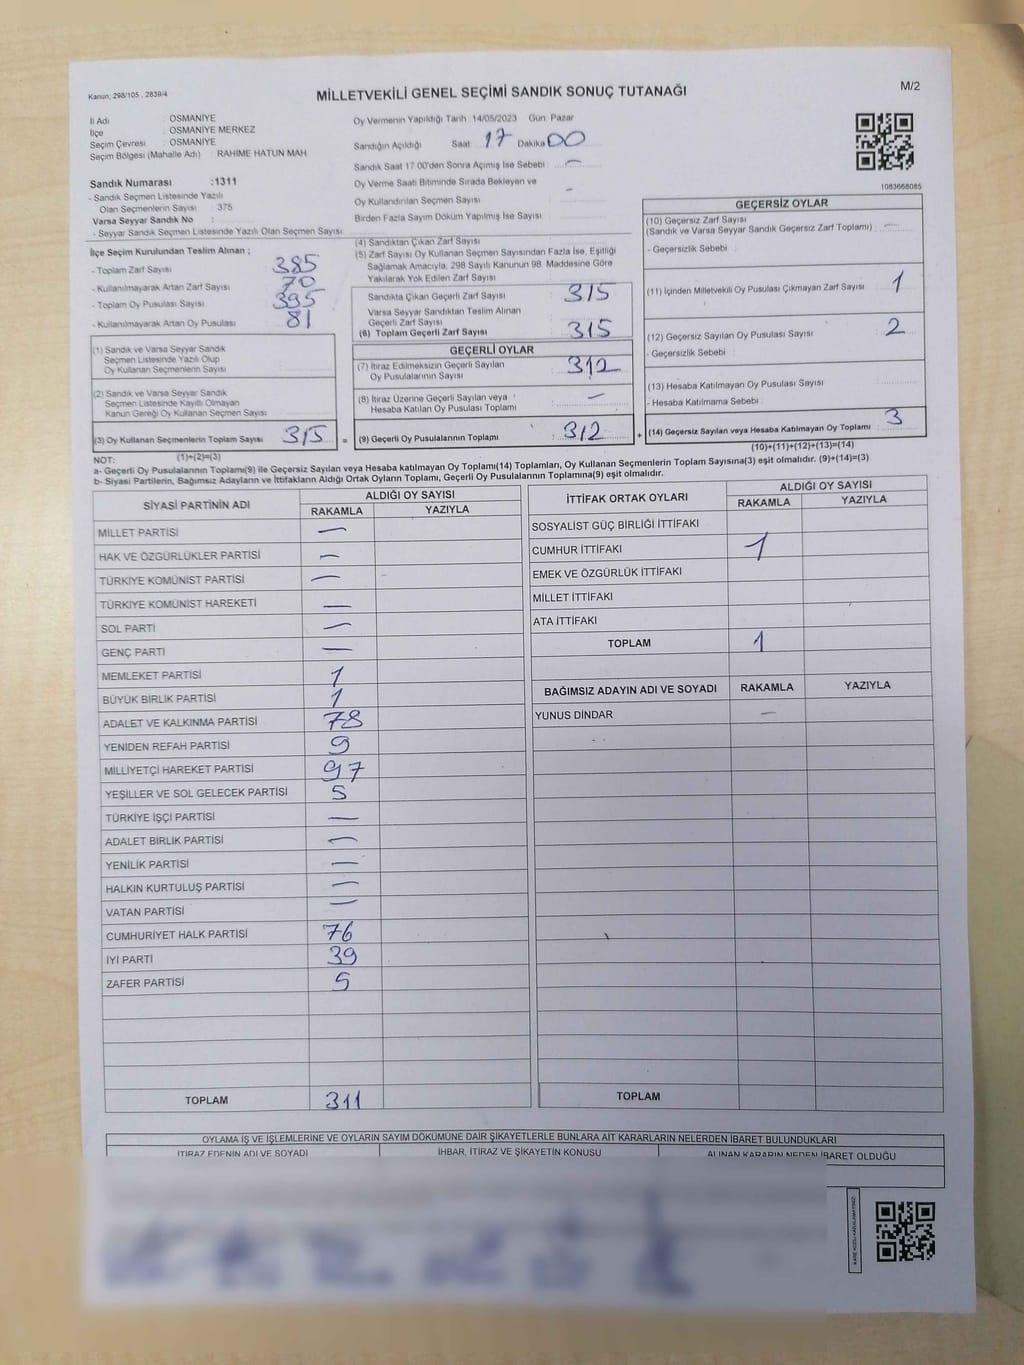 Kanun; 298/105 , 2839/4
MİLLETVEKİLİ GENEL SEÇİMİ SANDIK SONUÇ TUTANAĞI
M/2
İl Adı : OSMANİYE
İlçe : OSMANİYE MERKEZ
Seçim Çevresi : OSMANİYE
Seçim Bölgesi (Mahalle Adı) : RAHİME HATUN MAH
Sandık Numarası :1311
- Sandık Seçmen Listesinde Yazılı
Olan Seçmenlerin Sayısı : 375
Varsa Seyyar Sandık No :
- Seyyar Sandık Seçmen Listesinde Yazılı Olan Seçmen Sayısı:
Oy Vermenin Yapıldığı Tarih :14/05/2023 Gün: Pazar
Sandığın Açıldığı Saat: 17 Dakika 00
Sandık Saat 17:00'den Sonra Açımış İse Sebebi : —
Oy Verme Saati Bitiminde Sırada Bekleyen ve
Oy Kullandırılan Seçmen Sayısı : —
Birden Fazla Sayım Döküm Yapılmış İse Sayısı :
1083668085
İlçe Seçim Kurulundan Teslim Alınan ;
- Toplam Zarf Sayısı : 385
- Kullanılmayarak Artan Zarf Sayısı : 70
- Toplam Oy Pusulası Sayısı : 395
- Kullanılmayarak Artan Oy Pusulası : 81
(1) Sandık ve Varsa Seyyar Sandık
Seçmen Listesinde Yazılı Olup
Oy Kullanan Seçmenlerin Sayısı :
(2) Sandık ve Varsa Seyyar Sandık
Seçmen Listesinde Kayıtlı Olmayan
Kanun Gereği Oy Kullanan Seçmen Sayısı :
(3) Oy Kullanan Seçmenlerin Toplam Sayısı : 315 =
(1)+(2)=(3)
(4) Sandıktan Çıkan Zarf Sayısı :
(5) Zarf Sayısı Oy Kullanan Seçmen Sayısından Fazla İse, Eşitliği
Sağlamak Amacıyla, 298 Sayılı Kanunun 98. Maddesine Göre
Yakılarak Yok Edilen Zarf Sayısı :
Sandıkta Çıkan Geçerli Zarf Sayısı : 315
Varsa Seyyar Sandıktan Teslim Alınan
Geçerli Zarf Sayısı :
(6) Toplam Geçerli Zarf Sayısı : 315
GEÇERLİ OYLAR
(7) İtiraz Edilmeksizin Geçerli Sayılan
Oy Pusulalarının Sayısı : 312
(8) İtiraz Üzerine Geçerli Sayılan veya
Hesaba Katılan Oy Pusulası Toplamı : —
(9) Geçerli Oy Pusulalarının Toplamı : 312 +
GEÇERSİZ OYLAR
(10) Geçersiz Zarf Sayısı
(Sandık ve Varsa Seyyar Sandık Geçersiz Zarf Toplamı) : —
- Geçersizlik Sebebi :
(11) İçinden Milletvekili Oy Pusulası Çıkmayan Zarf Sayısı : 1
(12) Geçersiz Sayılan Oy Pusulası Sayısı : 2
- Geçersizlik Sebebi :
(13) Hesaba Katılmayan Oy Pusulası Sayısı :
- Hesaba Katılmama Sebebi :
(14) Geçersiz Sayılan veya Hesaba Katılmayan Oy Toplamı : 3
(10)+(11)+(12)+(13)=(14)
NOT:
a- Geçerli Oy Pusulalarının Toplamı(9) ile Geçersiz Sayılan veya Hesaba katılmayan Oy Toplamı(14) Toplamları, Oy Kullanan Seçmenlerin Toplam Sayısına(3) eşit olmalıdır. (9)+(14)=(3)
b- Siyasi Partilerin, Bağımsız Adayların ve İttifakların Aldığı Ortak Oyların Toplamı, Geçerli Oy Pusulalarının Toplamına(9) eşit olmalıdır.
SİYASİ PARTİNİN ADI ALDIĞI OY SAYISI
RAKAMLA YAZIYLA
MİLLET PARTİSİ —
HAK VE ÖZGÜRLÜKLER PARTİSİ —
TÜRKİYE KOMÜNİST PARTİSİ —
TÜRKİYE KOMÜNİST HAREKETİ —
SOL PARTİ —
GENÇ PARTİ —
MEMLEKET PARTİSİ 1
BÜYÜK BİRLİK PARTİSİ 1
ADALET VE KALKINMA PARTİSİ 78
YENİDEN REFAH PARTİSİ 9
MİLLİYETÇİ HAREKET PARTİSİ 97
YEŞİLLER VE SOL GELECEK PARTİSİ 5
TÜRKİYE İŞÇİ PARTİSİ —
ADALET BİRLİK PARTİSİ —
YENİLİK PARTİSİ —
HALKIN KURTULUŞ PARTİSİ —
VATAN PARTİSİ —
CUMHURİYET HALK PARTİSİ 76
İYİ PARTİ 39
ZAFER PARTİSİ 5
TOPLAM 311
İTTİFAK ORTAK OYLARI ALDIĞI OY SAYISI
RAKAMLA YAZIYLA
SOSYALİST GÜÇ BİRLİĞİ İTTİFAKI
CUMHUR İTTİFAKI 1
EMEK VE ÖZGÜRLÜK İTTİFAKI
MİLLET İTTİFAKI
ATA İTTİFAKI
TOPLAM 1
BAĞIMSIZ ADAYIN ADI VE SOYADI RAKAMLA YAZIYLA
YUNUS DİNDAR —
TOPLAM
OYLAMA İŞ VE İŞLEMLERİNE VE OYLARIN SAYIM DÖKÜMÜNE DAİR ŞİKAYETLERLE BUNLARA AİT KARARLARIN NELERDEN İBARET BULUNDUKLARI
İTİRAZ EDENİN ADI VE SOYADI İHBAR, İTİRAZ VE ŞİKAYETİN KONUSU ALINAN KARARIN NEDEN İBARET OLDUĞU